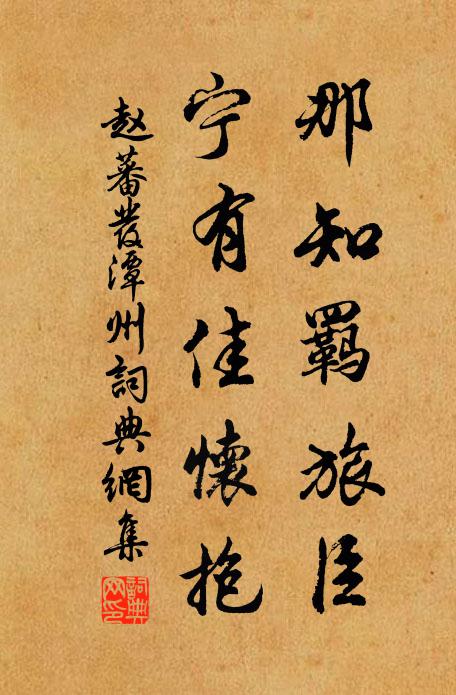 那知羁旅臣
宁有佳懷抱
赵蕃發潭州詞典網集
詞典
网印